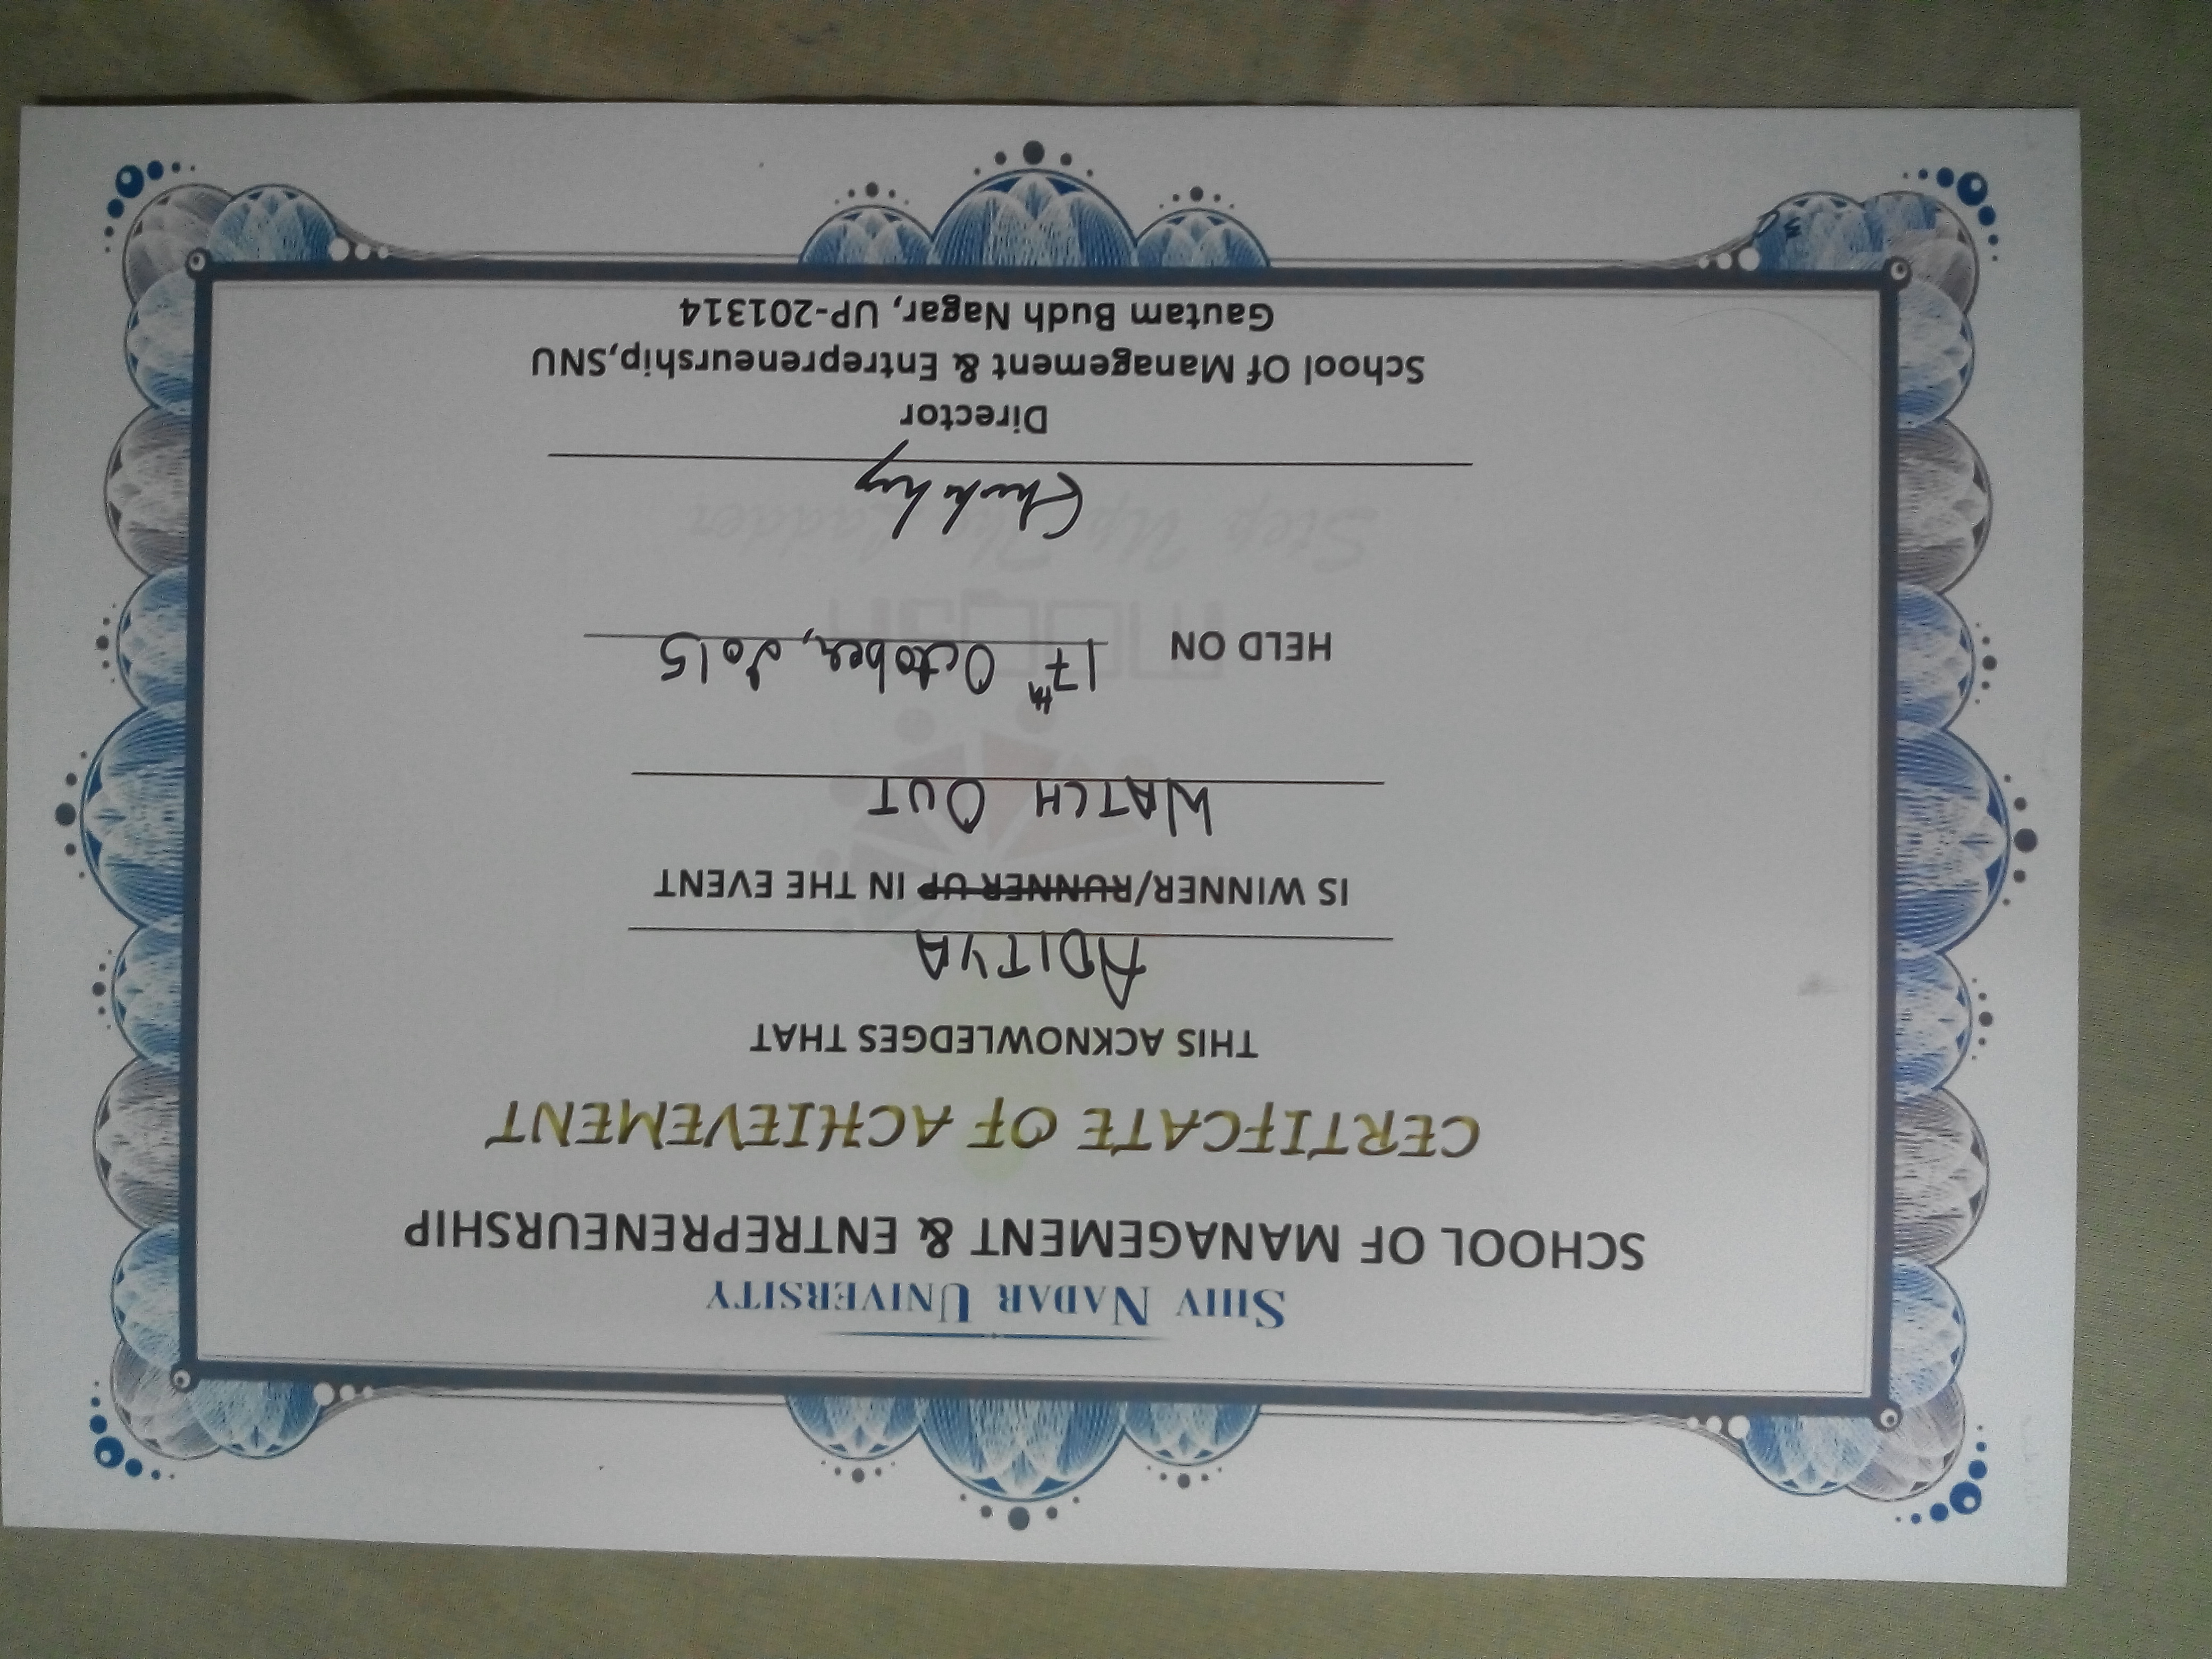 SHIV NADAR UNIVERSITY
SCHOOL OF MANAGEMENT & ENTREPRENEURSHIP
CERTIFCATE OF ACHIEVEMENT
THIS ACKNOWLEDGES THAT
ADITYA
IS WINNER/RUNNER UP IN THE EVENT
WATCH OUT
HELD ON 17th October, 2015
Step Up The Ladder
Director
School Of Management & Entrepreneurship,SNU
Gautam Budh Nagar, UP-201314